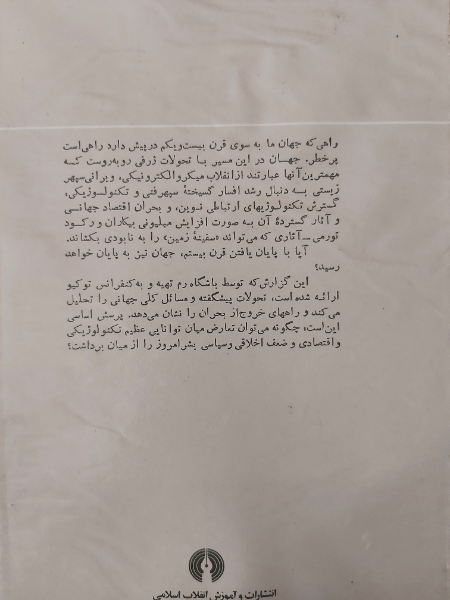 راهی که جهان ما به سوی قرن بیست‌ویکم درپیش دارد راهی است
پرخطر. جهان در این مسیر با تحولات ژرفی روبه‌روست که
مهمترین آنها عبارتند از انقلاب میکروالکترونیکی، ویرانی سپهر
زیستی به دنبال رشد افسار گسیختهٔ سپهر فنی و تکنولوژیکی،
گسترش تکنولوژیهای ارتباطی نوین، و بحران اقتصاد جهانی
و آثار گستردهٔ آن به صورت افزایش میلیونی بیکاران و رکود
تورمی ــ آثاری که می‌تواند «سفینهٔ زمین» را به نابودی بکشاند.
آیا با پایان یافتن قرن بیستم، جهان نیز به پایان خواهد
رسید؟
این گزارش که توسط باشگاه رم تهیه و به کنفرانس توکیو
ارائه شده است، تحولات پیشگفته و مسائل کلی جهانی را تحلیل
می‌کند و راههای خروج از بحران را نشان می‌دهد. پرسش اساسی
این است؛ چگونه می‌توان تعارض میان توانایی عظیم تکنولوژیکی
و اقتصادی و ضعف اخلاقی و سیاسی بشر امروز را از میان برداشت؟
انتشارات و آموزش انقلاب اسلامی